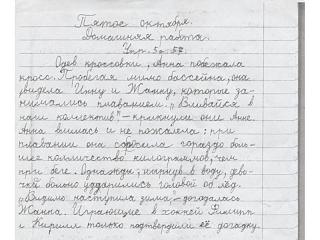 Пятое октября.
Домашняя работа.
Упр. 5а 58.
Одев кроссовки, Анна побежала
кросс. Пробегая мимо бассейна, она
увидела Инну и Жанну, которые за-
нимались плаванием. "Вливайся в
наш коллектив" – крикнули они Анне.
Анна влилась и не пожалела: при
плавании она сбросила гораздо боль-
шее колличество килограммов, чем
при беге. Однажды, нырнув в воду, дево-
чки больно ударились головой об лёд.
"Видимо наступила зима" – догадалась
Жанна. Играющие в хоккей Филипп
и Кирилл только подтвердили её догадку.